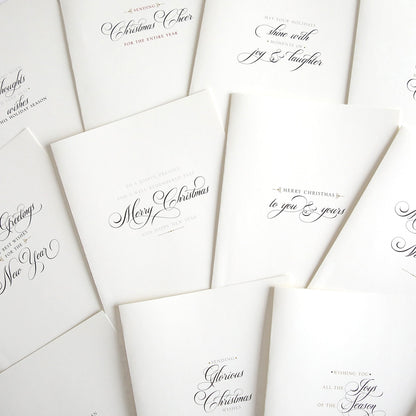 SENDING
Christmas Cheer
FOR THE ENTIRE YEAR
MAY YOUR HOLIDAYS
shine with
MOMENTS OF
joy & laughter
thoughts
wishes
THIS HOLIDAY SEASON
Greetings
BEST WISHES
FOR THE
New Year
Merry Christmas
AND HAPPY NEW YEAR
MERRY CHRISTMAS
to you & yours
SENDING
Glorious
Christmas
WISHES
WISHING YOU
ALL THE Joys
OF THE Season